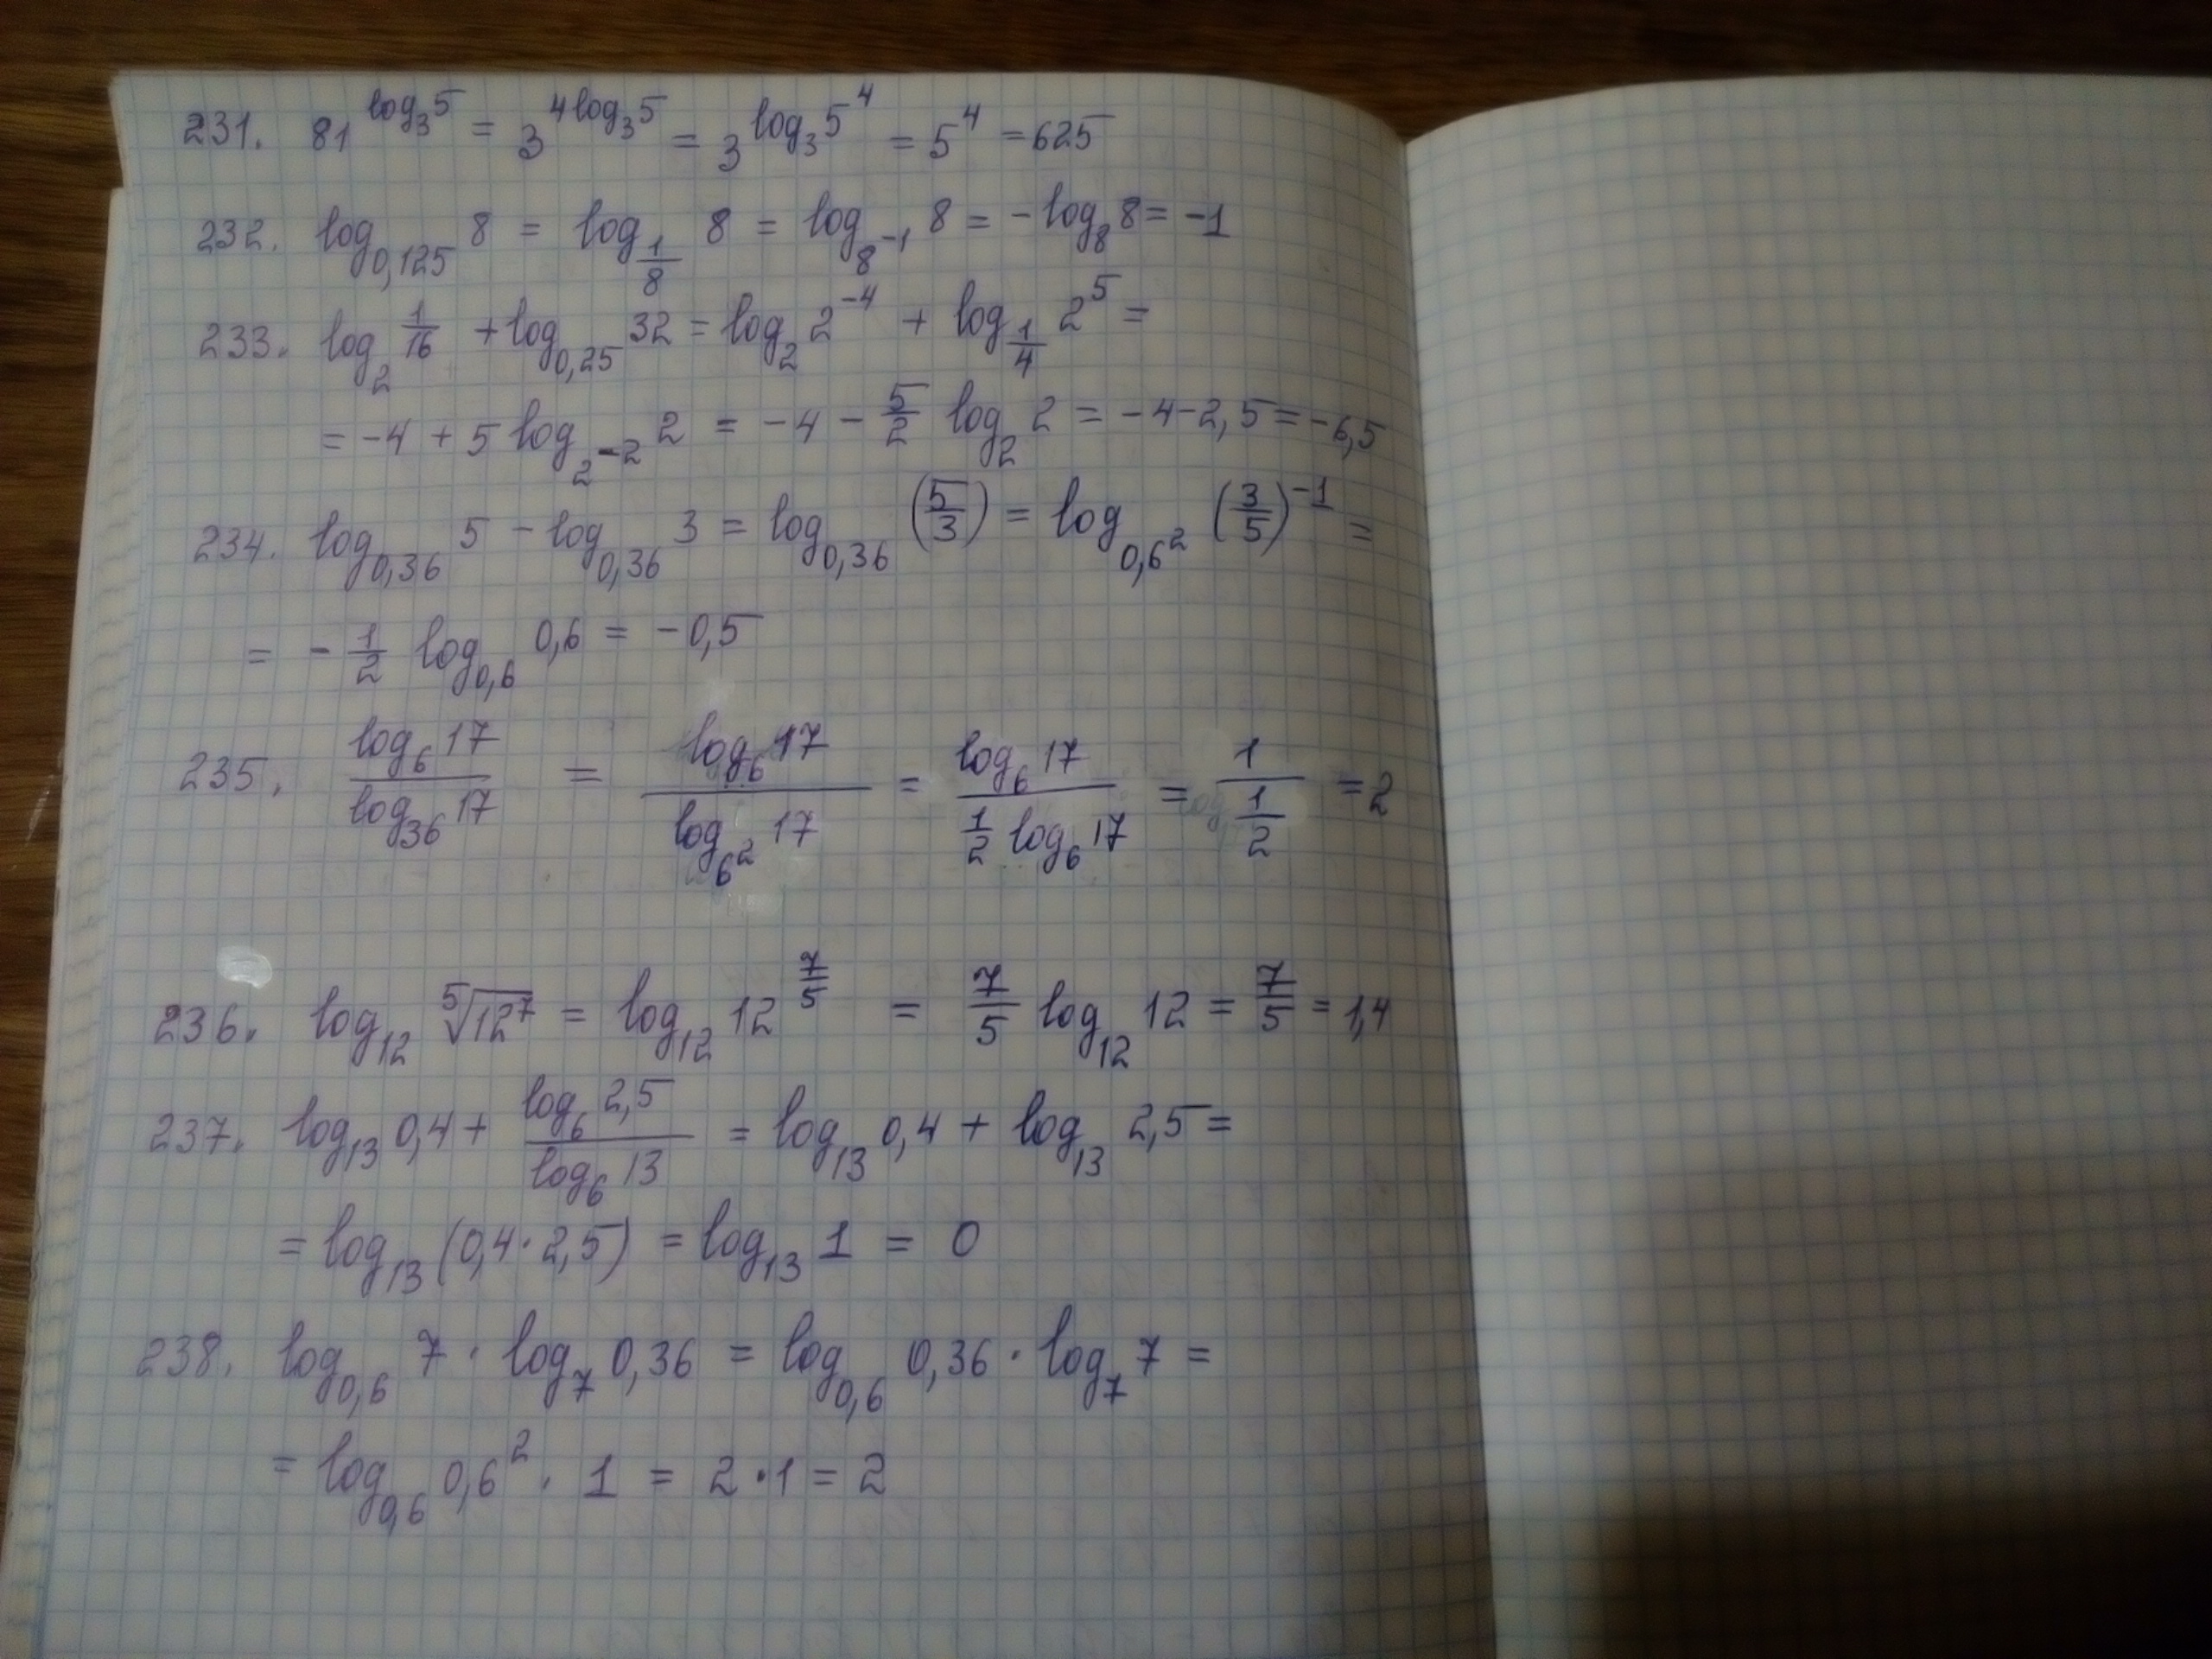 231. 81^(log₃5) = 3^(4log₃5) = 3^(log₃5⁴) = 5⁴ = 625
232. log_(0,125) 8 = log_(1/8) 8 = log_(8⁻¹) 8 = -log₈8 = -1
233. log₂ 1/16 + log_(0,25) 32 = log₂2⁻⁴ + log_(1/4) 2⁵ =
= -4 + 5 log_(2⁻²) 2 = -4 - 5/2 log₂ 2 = -4-2,5 = -6,5
234. log_(0,36) 5 - log_(0,36) 3 = log_(0,36) (5/3) = log_(0,6²) (3/5)⁻¹ =
= -1/2 log_(0,6) 0,6 = -0,5
235. log₆17/log₃₆17 = log₆17/log_(6²)17 = log₆17/(1/2 log₆17) = 1/(1/2) = 2
236. log₁₂ ⁵√(12⁷) = log₁₂ 12^(7/5) = 7/5 log₁₂ 12 = 7/5 = 1,4
237. log₁₃ 0,4 + log₆2,5/log₆13 = log₁₃ 0,4 + log₁₃ 2,5 =
= log₁₃ (0,4·2,5) = log₁₃ 1 = 0
238. log_(0,6) 7 · log₇ 0,36 = log_(0,6) 0,36 · log₇ 7 =
= log_(0,6) 0,6² · 1 = 2·1 = 2